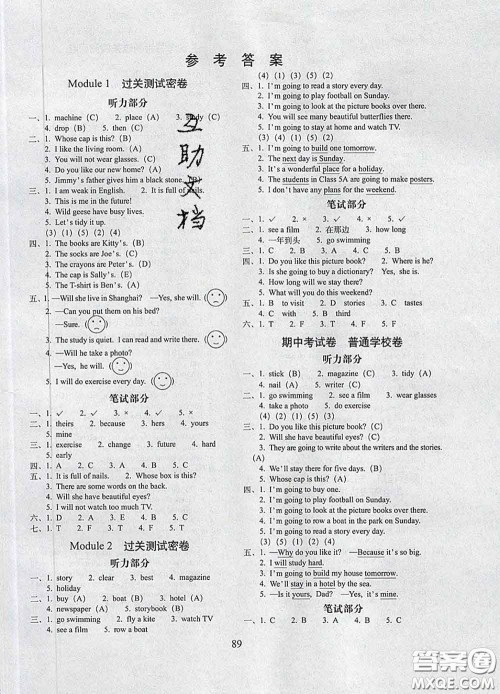 参考答案
Module 1 过关测试密卷
听力部分
一、1. machine (C) 2. place (A) 3. study (C)
4. drop (B) 5. then (C)
二、1. Whose cap is this? (B)
2. I like the living room. (B)
3. You will not wear glasses. (C)
4. Do you like our new home? (A)
5. Jimmy's father gives him a shiny new bike. (C)
三、1. I am weak in English. 2. It is full of nails.
3. This is me in the future!
4. Wild geese have busy lives.
5. Let's tidy it up.
(3) (1) (5) (4) (2)
四、1. The books are Kitty's. (B)
2. The socks are Joe's. (D)
3. The crayons are Peter's. (E)
4. The cap is Sally's. (A)
5. The T-shirt is Ben's. (C)
五、1. —Will she live in Shanghai? —Yes, she will.
2. —Can you put them on his bed?
—Sure.
3. The study is quiet. I can read and write there.
4. —Will he take a photo?
—Yes, he will.
5. I will do exercise every day.
笔试部分
一、1. ✓ 2. ✓ 3. × 4. × 5. ✓
二、1. theirs 2. because 3. hers 4. yours
5. mine
三、1. exercise 2. change 3. future 4. hard
5. early
四、1. A 2. C 3. B 4. A 5. C
五、1. It is full of nails. 2. Whose box is this?
3. There are some words on the back.
4. Will she have beautiful eyes?
5. I will not watch too much TV.
六、1. D 2. A 3. E 4. C 5. B
七、1. T 2. F 3. T 4. F 5. F
Module 2 过关测试密卷
听力部分
一、1. story 2. clear 3. best 4. magazine
5. holiday
二、1. buy (A) 2. boat (A) 3. hotel (A)
4. newspaper (A) 5. storybook (B)
三、1. go swimming 2. fly a kite 3. watch TV
4. see a film 5. row a boat
(4) (1) (3) (5) (2)
四、1. I'm going to read a story every day.
2. I'm going to play football on Sunday.
3. I'm going to look at the picture books over there.
4. You will see many beautiful butterflies there.
5. I'm going to stay at home and watch TV.
(3) (2) (4) (1) (5)
五、1. I'm going to build one tomorrow.
2. The next day is Sunday.
3. It's a wonderful place for a holiday.
4. The students in Class 5A are making posters.
5. I don't have any plans for the weekend.
笔试部分
一、1. ✓ 2. × 3. ✓ 4. × 5. ×
二、1. see a film 2. 在那边 3. how long
4. 一年到头 5. go swimming
三、1. Do you like this picture book? 2. Where is he?
3. Is she going to buy a dictionary? Yes, she is.
4. How long will he stay there?
5. What will you do this weekend?
四、1. B to visit 2. D stories 3. C tastes
4. C with 5. C cities
六、1. T 2. F 3. F 4. T 5. F
期中考试卷 普通学校卷
听力部分
一、1. stick (B) 2. magazine (B) 3. tidy (A)
4. nail (A) 5. writer (C)
二、1. go swimming 2. see a film 3. wear glasses
4. take a photo 5. do exercise
(4) (2) (1) (5) (3)
三、1. Do you like this picture book? (C)
2. Will she have beautiful eyes? (B)
3. I'm going to write about the writers and the stories.
(A)
4. We'll stay there for five days. (B)
5. Whose cap is this? (A)
四、1. I'm going to buy one.
2. I'm going to play football on Sunday.
3. I'm going to build your house tomorrow.
4. I'm going to row a boat in the park on Sunday.
5. I'm going to read a story every day.
(2) (5) (3) (4) (1)
五、1. —Why do you like it? —Because it's so big.
2. I will study hard.
3. I'm going to build my house tomorrow.
4. We'll stay in a hotel by the sea.
5. —Is it yours, Dad? —Yes, it's mine.
笔试部分
一、1. C 2. B 3. A 4. C 5. B
89
互助文档
答案圈
MXQE.COM